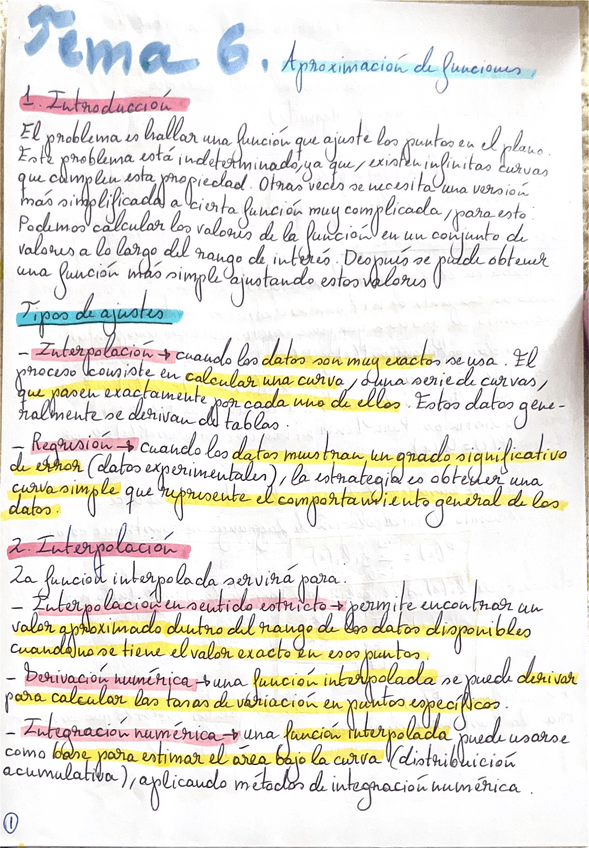 Tema 6. Aproximación de funciones
1. Introducción
El problema es hallar una función que ajuste los puntos en el plano.
Este problema está indeterminado, ya que, existen infinitas curvas
que cumplen esta propiedad. Otras veces se necesita una versión
más simplificada a cierta función muy complicada, para esto:
Podemos calcular los valores de la función en un conjunto de
valores a lo largo del rango de interés. Después se puede obtener
una función más simple ajustando estos valores
Tipos de ajustes
- Interpolación → cuando los datos son muy exactos se usa. El
proceso consiste en calcular una curva, o una serie de curvas,
que pasen exactamente por cada uno de ellos. Estos datos gene-
ralmente se derivan de tablas.
- Regresión → cuando los datos muestran un grado significativo
de error (datos experimentales), la estrategia es obtener una
curva simple que represente el comportamiento general de los
datos.
2. Interpolación
La función interpolada servirá para.
- Interpolación en sentido estricto → permite encontrar un
valor aproximado dentro del rango de los datos disponibles
cuando no se tiene el valor exacto en esos puntos.
- Derivación numérica → una función interpolada se puede derivar
para calcular las tasas de variación en puntos específicos.
- Integración numérica → una función interpolada puede usarse
como base para estimar el área bajo la curva (distribuición
acumulativa), aplicando métodos de integración numérica.
1